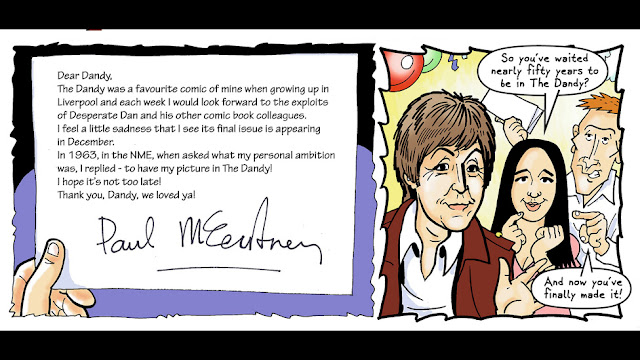 Dear Dandy,
The Dandy was a favourite comic of mine when growing up in
Liverpool and each week I would look forward to the exploits
of Desperate Dan and his other comic book colleagues.
I feel a little sadness that I see its final issue is appearing
in December.
In 1963, in the NME, when asked what my personal ambition
was, I replied - to have my picture in The Dandy!
I hope it's not too late!
Thank you, Dandy, we loved ya!
Paul McCartney
So you've waited
nearly fifty years to
be in The Dandy?
And now you've
finally made it!